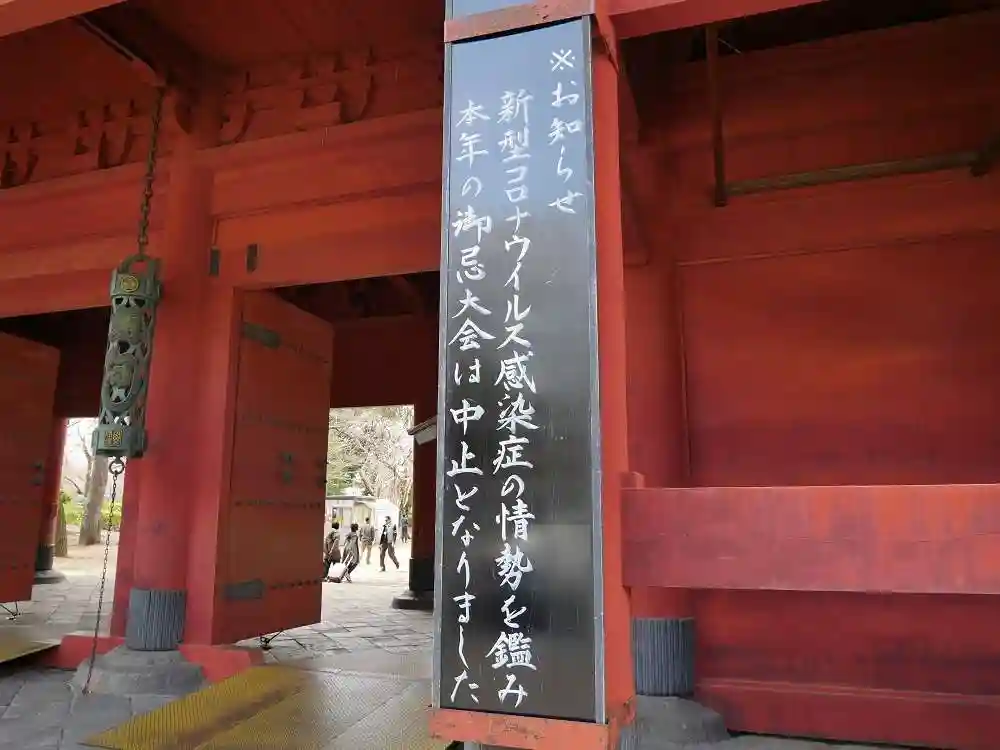 ※お知らせ
新型コロナウイルス感染症の情勢を鑑み
本年の御忌大会は中止となりました